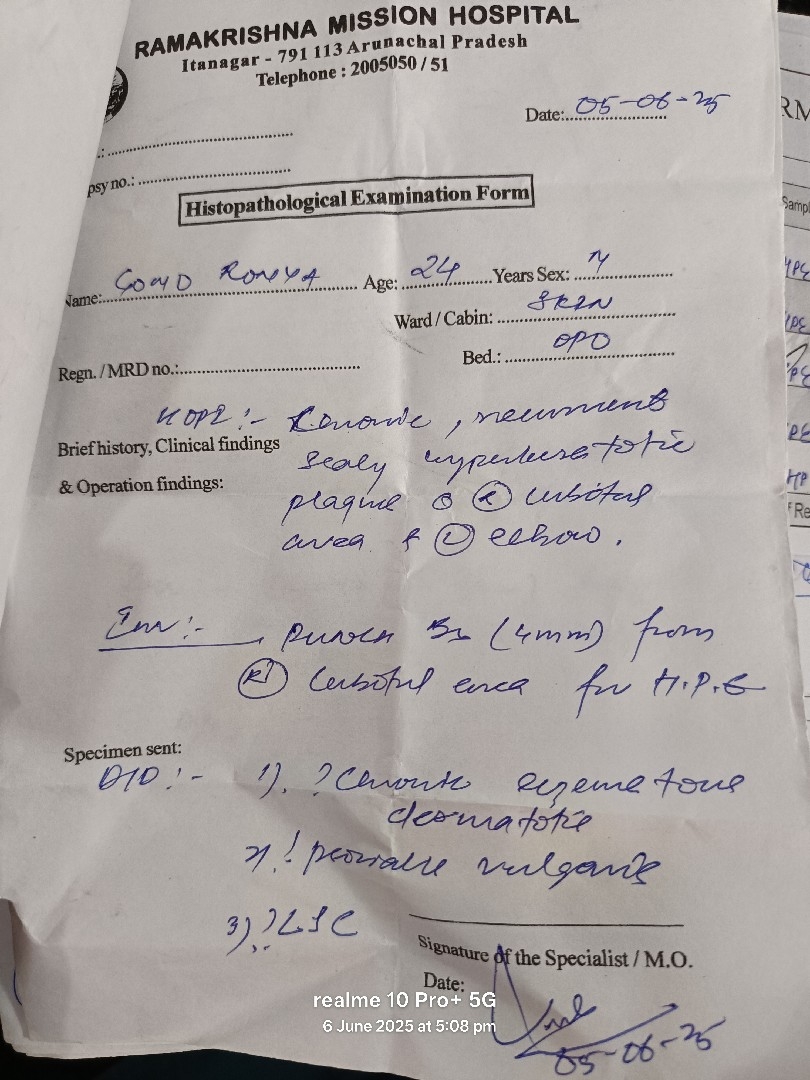 RAMAKRISHNA MISSION HOSPITAL
Itanagar - 791 113 Arunachal Pradesh
Telephone : 2005050 / 51
Date:..... 05-06-25
.: ..............................
psy no.: ..............................
Histopathological Examination Form
Name: Age: 24 Years Sex: M
Ward / Cabin: SKIN
Regn. / MRD no.:.............................. Bed.: OPD
HOPI :- Chronic, recurrent
Brief history, Clinical findings
scaly hyperkeratotic
& Operation findings:
plaque (R) cubital
area & (L) elbow.
Inv :- Punch Bx (4mm) from
(Rt) cubital area for H.P.E
Specimen sent:
D/D :- 1). ? Chronic eczematous
dermatotic
2. ! psoriasis vulgaris
3) ? LSC
Signature of the Specialist / M.O.
Date:
05-06-25
realme 10 Pro+ 5G
6 June 2025 at 5:08 pm
RM
Sampl
HPE
HPE
HPE
HP
f Re